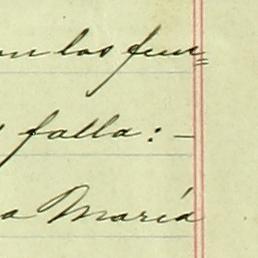 on los fun=
falla: —
a María